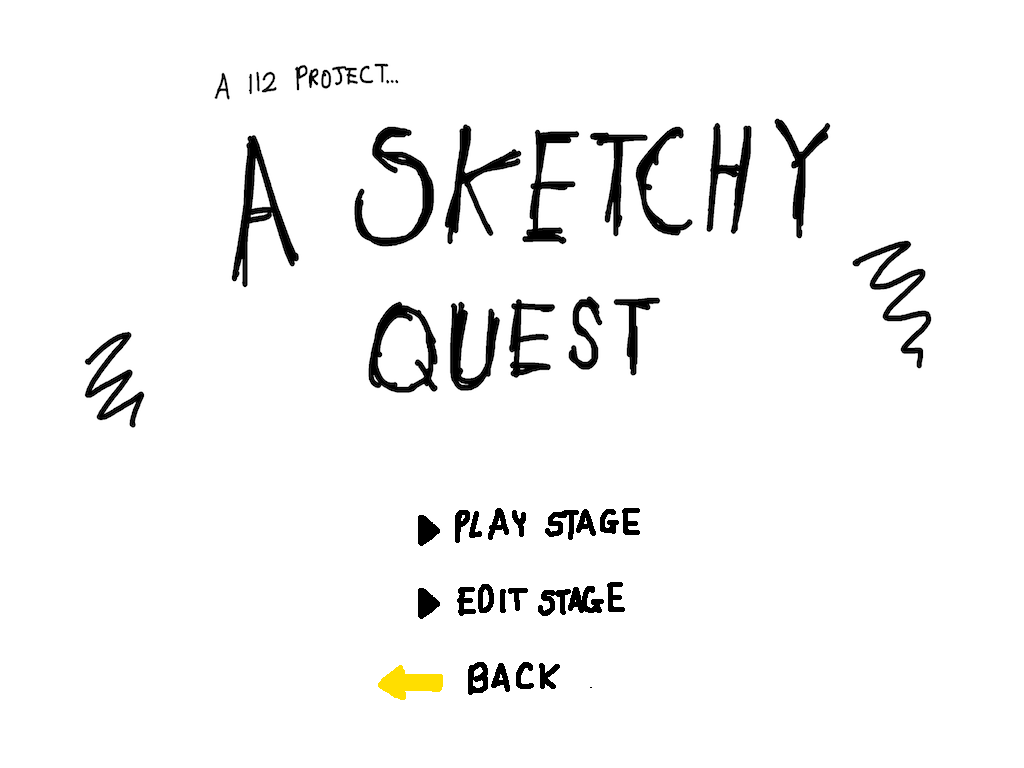 A 112 PROJECT...
A SKETCHY
QUEST
PLAY STAGE
EDIT STAGE
BACK